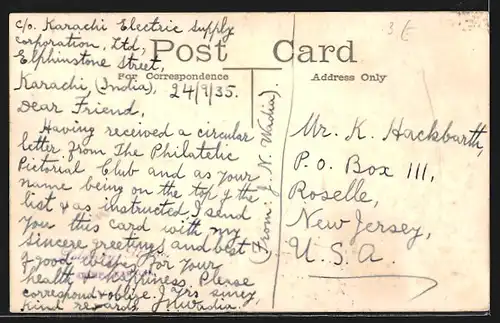 c/o. Karachi Electric Supply
Corporation, Ltd.,
Elphinstone Street,
Karachi, (India), 24/9/35.
Post Card
For Correspondence
Address Only
Dear Friend,
Having received a circular
letter from The Philatelic
Pictorial Club and as your
name being on the top of the
list & as instructed, I send
you this card with my
sincere greetings and best
& good wishes for your
health & happiness. Please
correspond & oblige.
kind regards, J. N. Wadia.
(From: J. N. Wadia).
Mr. K. Hackbarth,
P. O. Box 111,
Roselle,
New Jersey,
U. S. A.